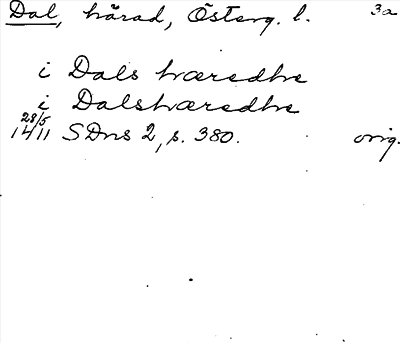 Dal, härad, Österg. l. 3a
i Dals hæredhe
i Dalshæredhe
28/5
1411 SDns 2, s. 380. orig.